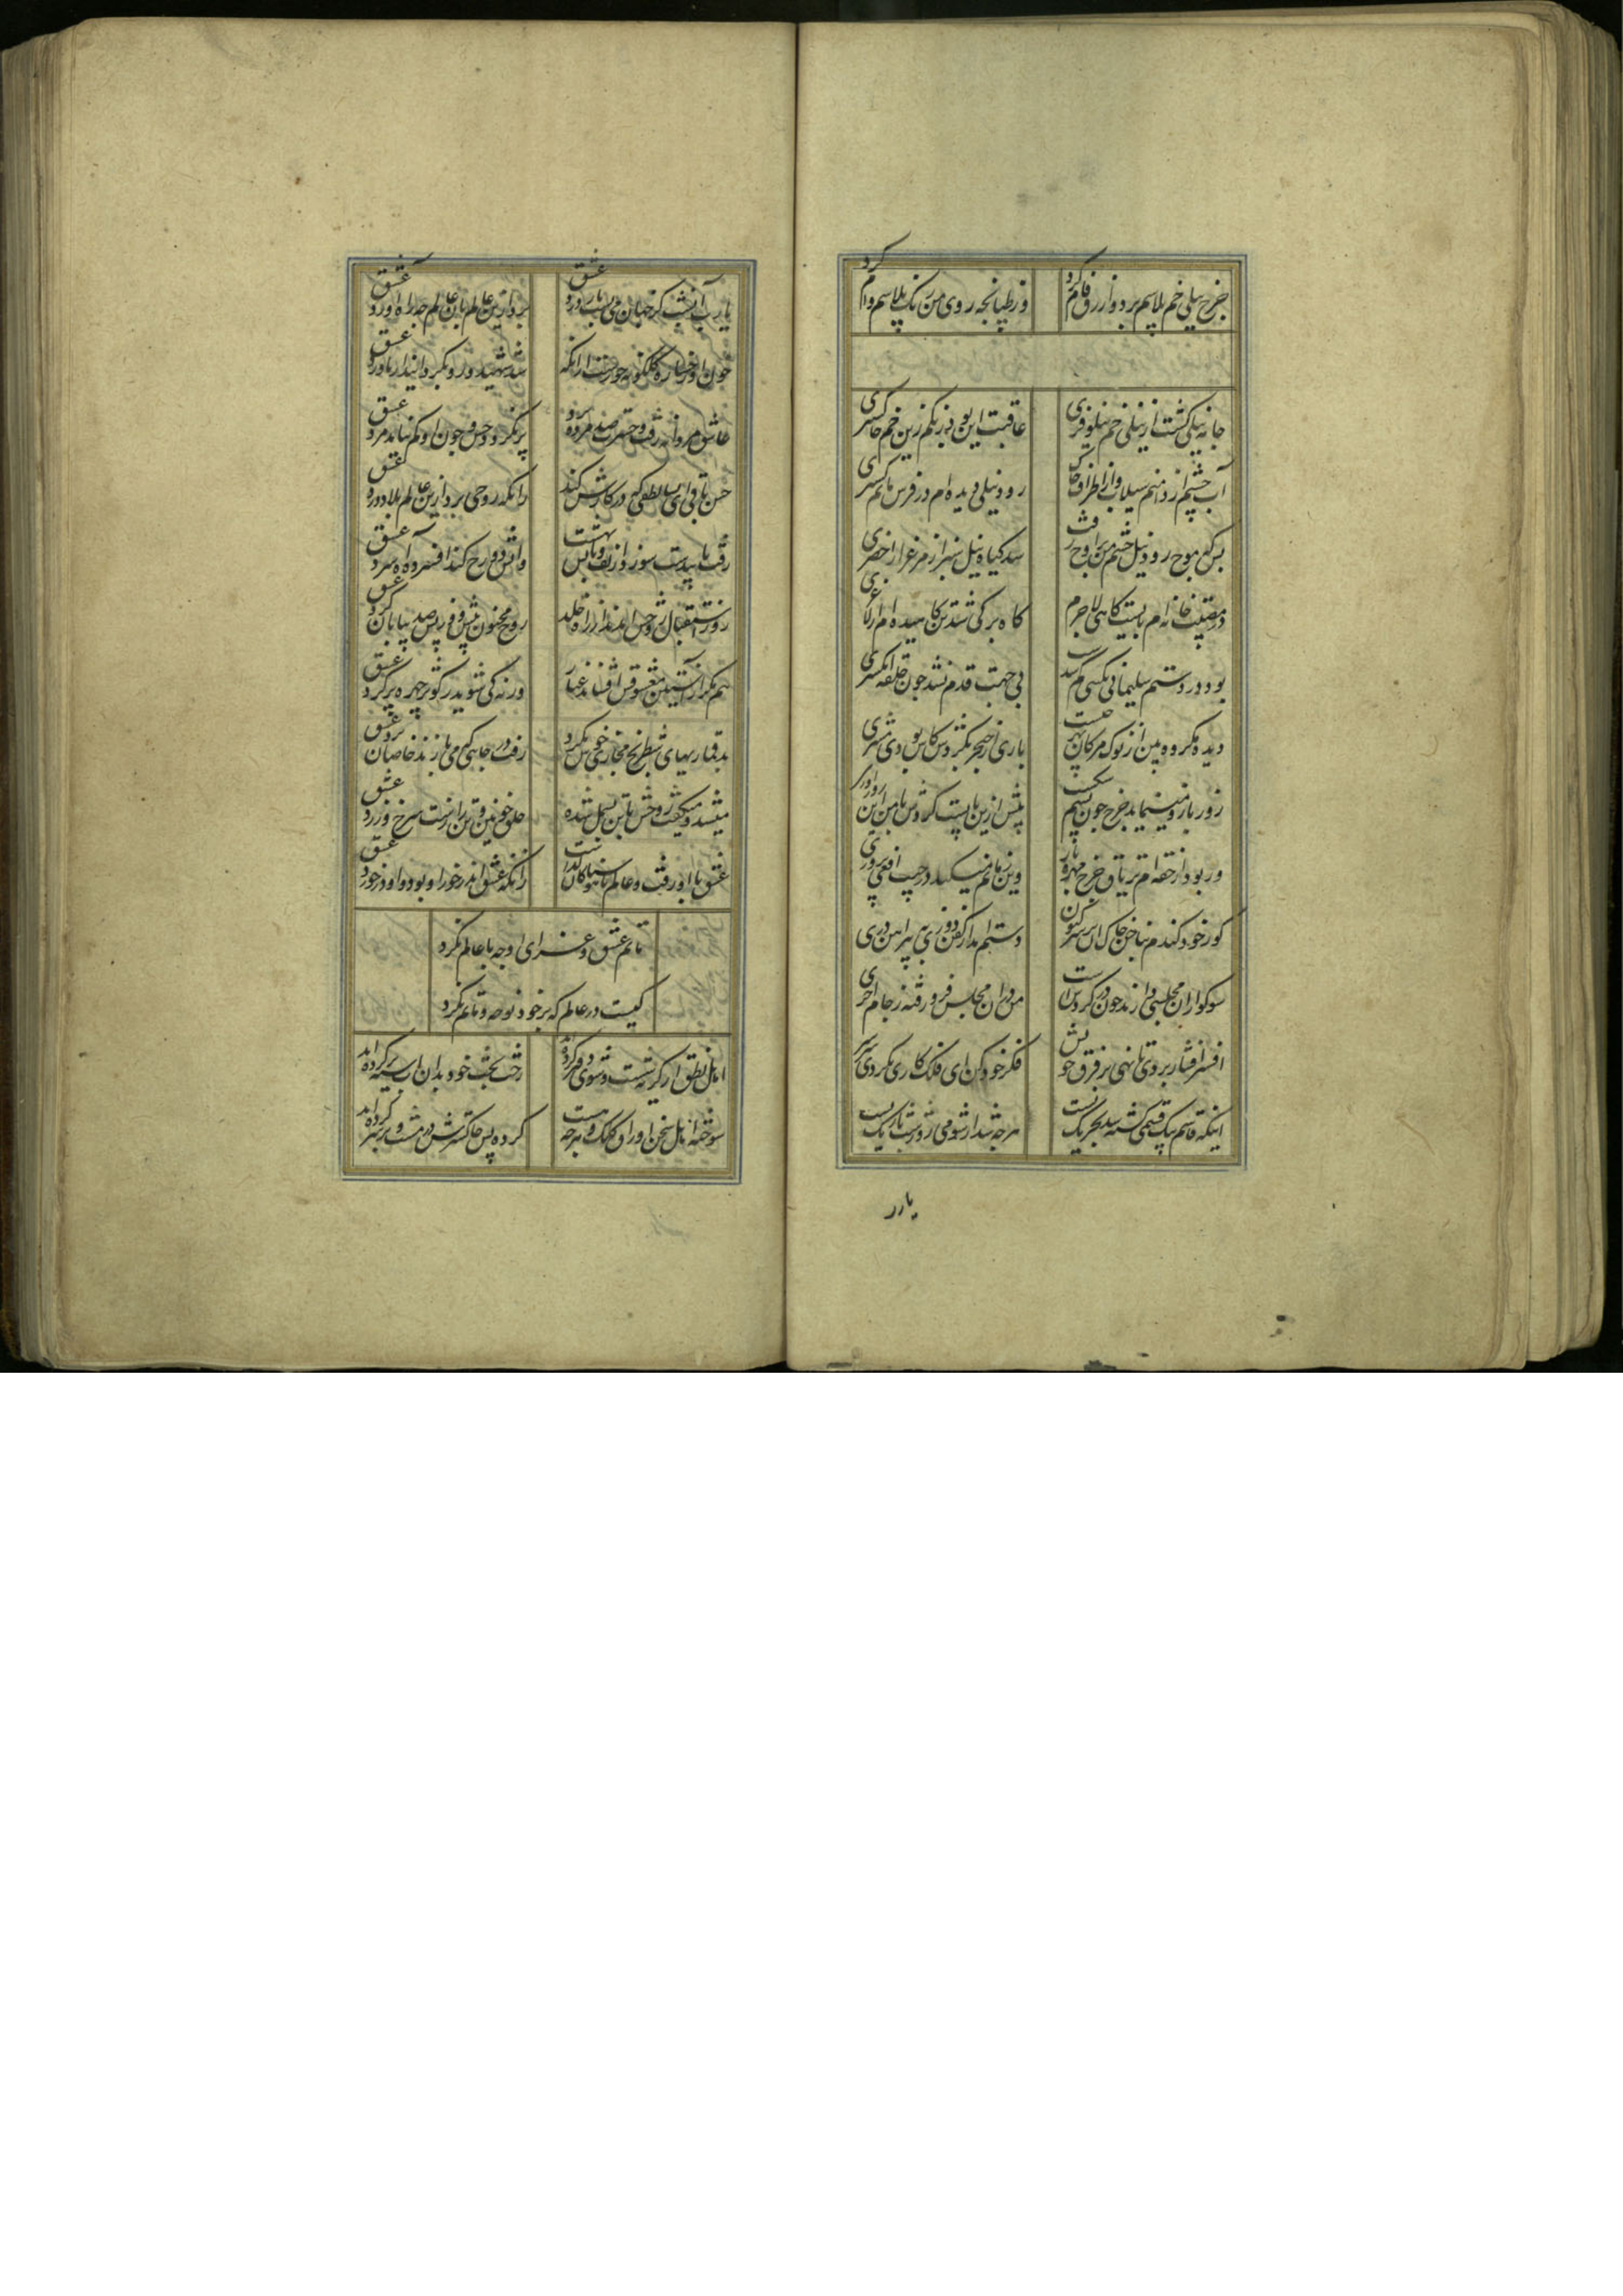 چرخ نیلی خم پلاسم برد و ازرق فام کرد
وز طپانچه روی من رنک پلاسم وام کرد
جانه نیلی کشت از نیلی خم نیلوفری
عاقبت این بود رنکم زین خم خاکستری
آب چشم از دامنم سیلاب و از اطراف خاک
رود نیلی دیده‌ام در
بس که موج رود نیل چشم من بر اوج رفت
شد کیاه نیل سبز از مرغزار اخضری
در مصیبت خانه‌ام بایست کاهی لاجرم
کاه برکی شد تن کاهیده‌ام
بود در دستم سلیمانی نکینی
بی جهت قدم نشد چون حلقه انکشتری
دیده کروه بین از نوک مژکان بهر چیست
باری ار خنجر نکشتش کاش بودی نشتری
زور بازو مینماید چرخ چون دستم شکست
پیش ازین بایست کردش با من این زورآوری
در ربود از حقه‌ام تریاق چرخ مهره باز
وین زمانم میکند در جیب افعی پروری
کور خود کندم بناخن خاک آن بر سر کون
دستم امد از کفن دوزی به پیراهن دری
سوکواران مجلسی دارند چون
من در ان مجلس فرو رفته ز جام اخری
افسر افشار بردی تا نهی بر فرق خویش
فکر خود کن ای فلک کاری نکردی سرسری
اینکه قاسم بیک قسمی کشته شد بجر یک نیست
هرچه شد از شومی روز و شب تاریک نیست
یارب
یارب آنشب کز جهان می‌بست بار درد عشق
برد ازین عالم بان عالم چه راه آورد عشق
خون او رخساره کلکونه حورست ازانکه
شد شهید و رو نکردانید از ناورد عشق
عاشق مردانه رفت و حسرت صد مرده برد
پر نکردد چون او کم نیابد مرد عشق
حسن باقی ای بسا لطفی که در کارش کند
زانکه روحی برد ازین عالم بلا پرورد عشق
رفت با بایست سوزد از تف و تابش بهشت
واتش دوزخ کند افسرده آه سرد عشق
روز استقبال روحش امدند از راه خلد
روح مجنون پیش و فرهاد از پس صد بیابان کرد عشق
هم مکر از آستین معشوقش افشاند غبار
ورنه کی شوید ز کوثر چهره پر کرد عشق
بد قماریهای شطرنج مجازی خوش نکرد
رفت در جایی که می‌بازند خاصان نرد عشق
میشد و میکفت روحش با تن بسمل شده
حلق خونین و تن زارت سرخ و زرد عشق
عشق با او رفت و عالم را بهوسناکان کذاشت
زانکه عشق اندر خور او بود و او در خورد عشق
ماتم عشق و عزای او چه با عالم نکرد
کیست در عالم که بر خود نوحه و ماتم نکرد
اهل نطق از کریه شست و شوی دفتر کرده‌اند
رخت بخت خود بدان اب سیه تر کرده‌اند
سوخته اهل سخن اوراق کلک و هرچه هست
کرده پس خاکسترش در مشت و بر سر کرده‌اند